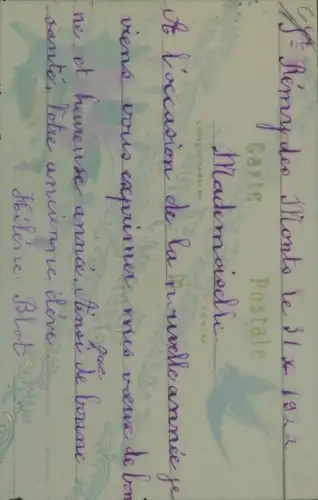 St Rémy des Monts le 31 X 1922
Carte Postale
Mademoiselle
A l'occasion de la nouvelle année je
viens vous exprimer mes vœux de bon
ne et heureuse année, Ainsi que de bonne
santé. Votre ancienne élève
Hélène Blot